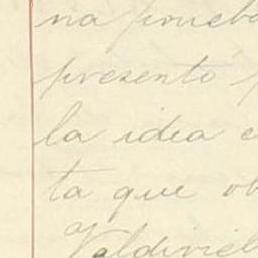 na prueba
presentó
la idea
ta que ob
Valdivie